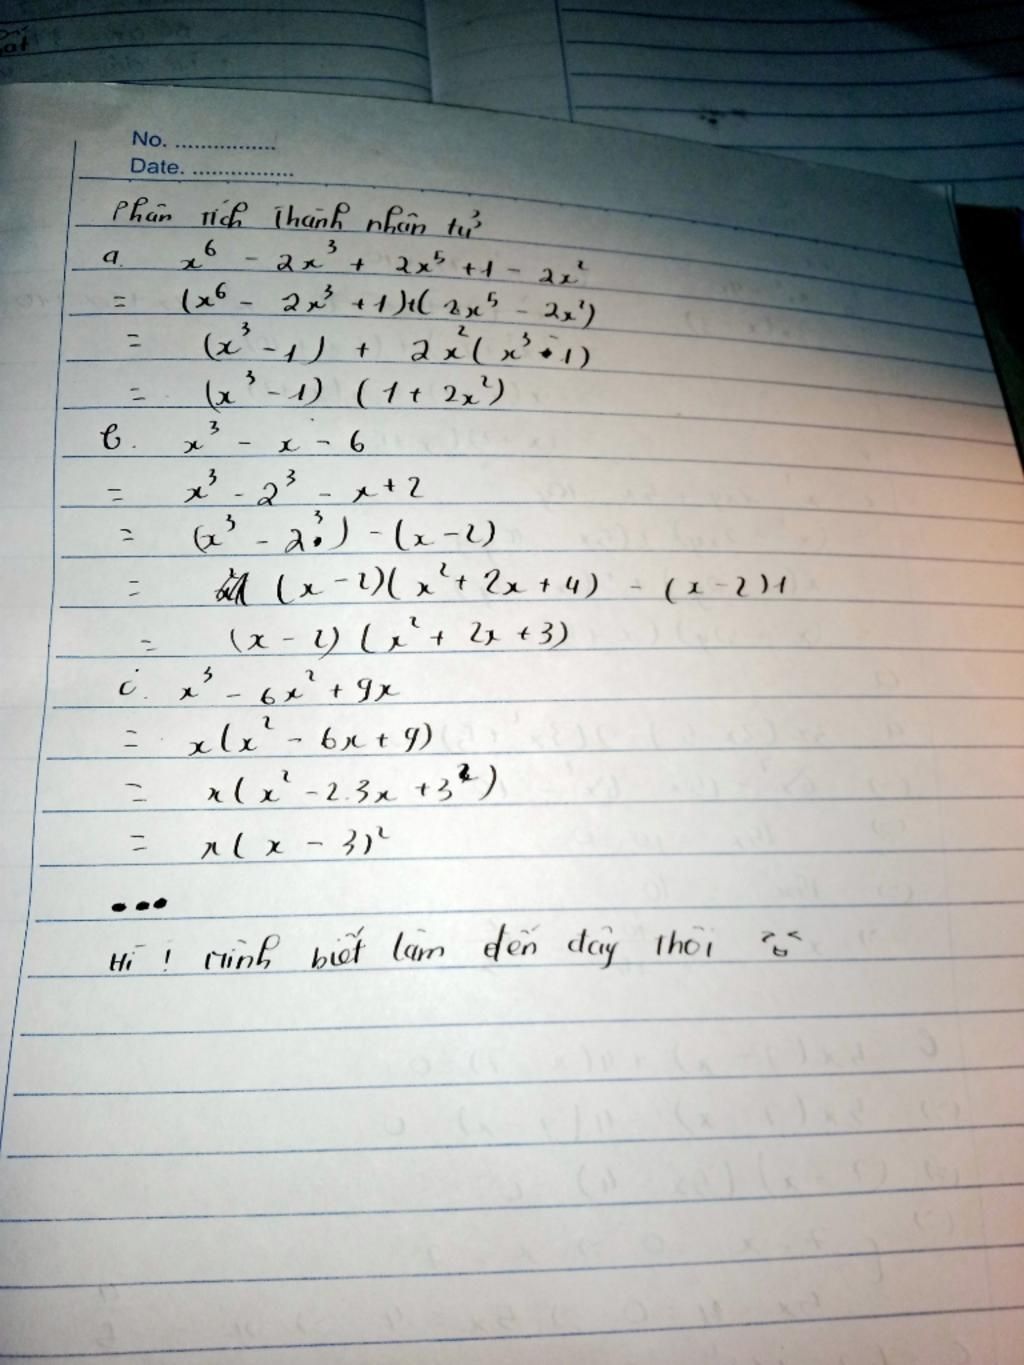 No. ................
Date. ................
Phân tích thành nhân tử
a. x⁶ - 2x³ + 2x⁵ + 1 - 2x²
= (x⁶ - 2x³ + 1) + ( 2x⁵ - 2x²)
= (x³ - 1) + 2x² ( x³ - 1)
= (x³ - 1) ( 1 + 2x²)
b. x³ - x - 6
= x³ - 2³ - x + 2
= (x³ - 2³) - (x - 2)
= (x - 2)( x² + 2x + 4) - (x - 2)1
= (x - 2) ( x² + 2x + 3)
c. x³ - 6x² + 9x
= x(x² - 6x + 9)
= x( x² - 2.3x + 3²)
= x( x - 3)²
...
Hì ! Mình biết làm đến đây thôi